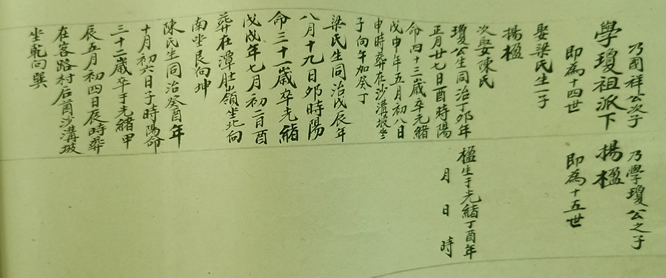 乃國祥公次子
學瓊祖派下
即為十四世
娶梁氏生一子
揚楹
次娶陳氏
瓊公生同治丁卯年
正月廿七日酉時陽
命四十三歲卒光緒
戊申年五月初八日
申時葬在沙溝坡坐
子向午加癸丁
梁氏生同治戊辰年
八月十九日卯時陽
命三十一歲卒光緒
戊戌年七月初二日酉
葬在潭肚山嶺坐北向
南坐艮向坤
陳氏生同治癸酉年
十月初六日子時陽命
三十二歲卒于光緒甲
辰五月初四日辰時葬
在客路村后背沙溝坡
坐乾向巽
乃學瓊公之子
揚楹
即為十五世
楹生于光緒丁酉年
月 日 時